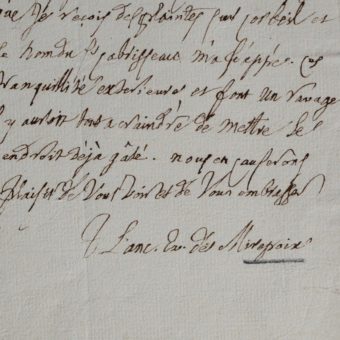 que je reçois des plaintes sur corbeil et
le nom du Sr gabrisseau m'a frappé. ces
tranquillité exterieures et font un ravage
il y auroit tout a craindre de mettre le
endroit déjà gâté. nous en causerons
plaisir de vous voir et de vous embrasser
l'anc. Ev. de Mirepoix